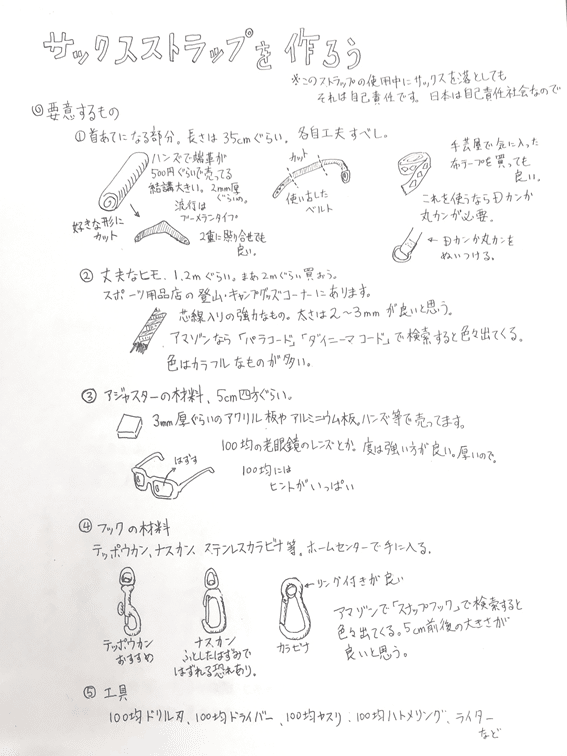 サックスストラップを作ろう
※このストラップの使用中にサックスを落としても
それは自己責任です。日本は自己責任社会なので
◎要意するもの
①首あてになる部分。長さは35cmぐらい。各自工夫すべし。
ハンズで端革が
500円ぐらいで売ってる
結講大きい。2mm厚
ぐらいの。
好きな形に
カット
流行は
ブーメランタイプ
2重に貼り合せても
良い。
カット
使い古した
ベルト
手芸屋で気に入った
布テープを買っても
良い。
これを使うならDカンか
丸カンが必要。
←Dカンか丸カンを
ぬいつける。
②丈夫なヒモ、1.2mぐらい。まあ2mぐらい買おう。
スポーツ用品店の登山・キャンプグッズコーナーにあります。
芯線入りの強力なもの。太さは2〜3mmが良いと思う。
アマゾンなら「パラコード」「ダイニーマコード」で検索すると色々出てくる。
色はカラフルなものが多い。
③アジャスターの材料、5cm四方ぐらい。
3mm厚ぐらいのアクリル板やアルミニウム板。ハンズ等で売ってます。
100均の老眼鏡のレンズとか。度は強い方が良い。厚いので。
はずす
100均には
ヒントがいっぱい
④フックの材料
テッポウカン、ナスカン、ステンレスカラビナ等。ホームセンターで手に入る。
テッポウカン
おすすめ
ナスカン
ふとしたはずみで
はずれる恐れあり。
カラビナ
←リング付きが良い
アマゾンで「スナップフック」で検索すると
色々出てくる。5cm前後の大きさが
良いと思う。
⑤工具
100均ドリル刃、100均ドライバー、100均ヤスリ、100均ハトメリング、ライター
など